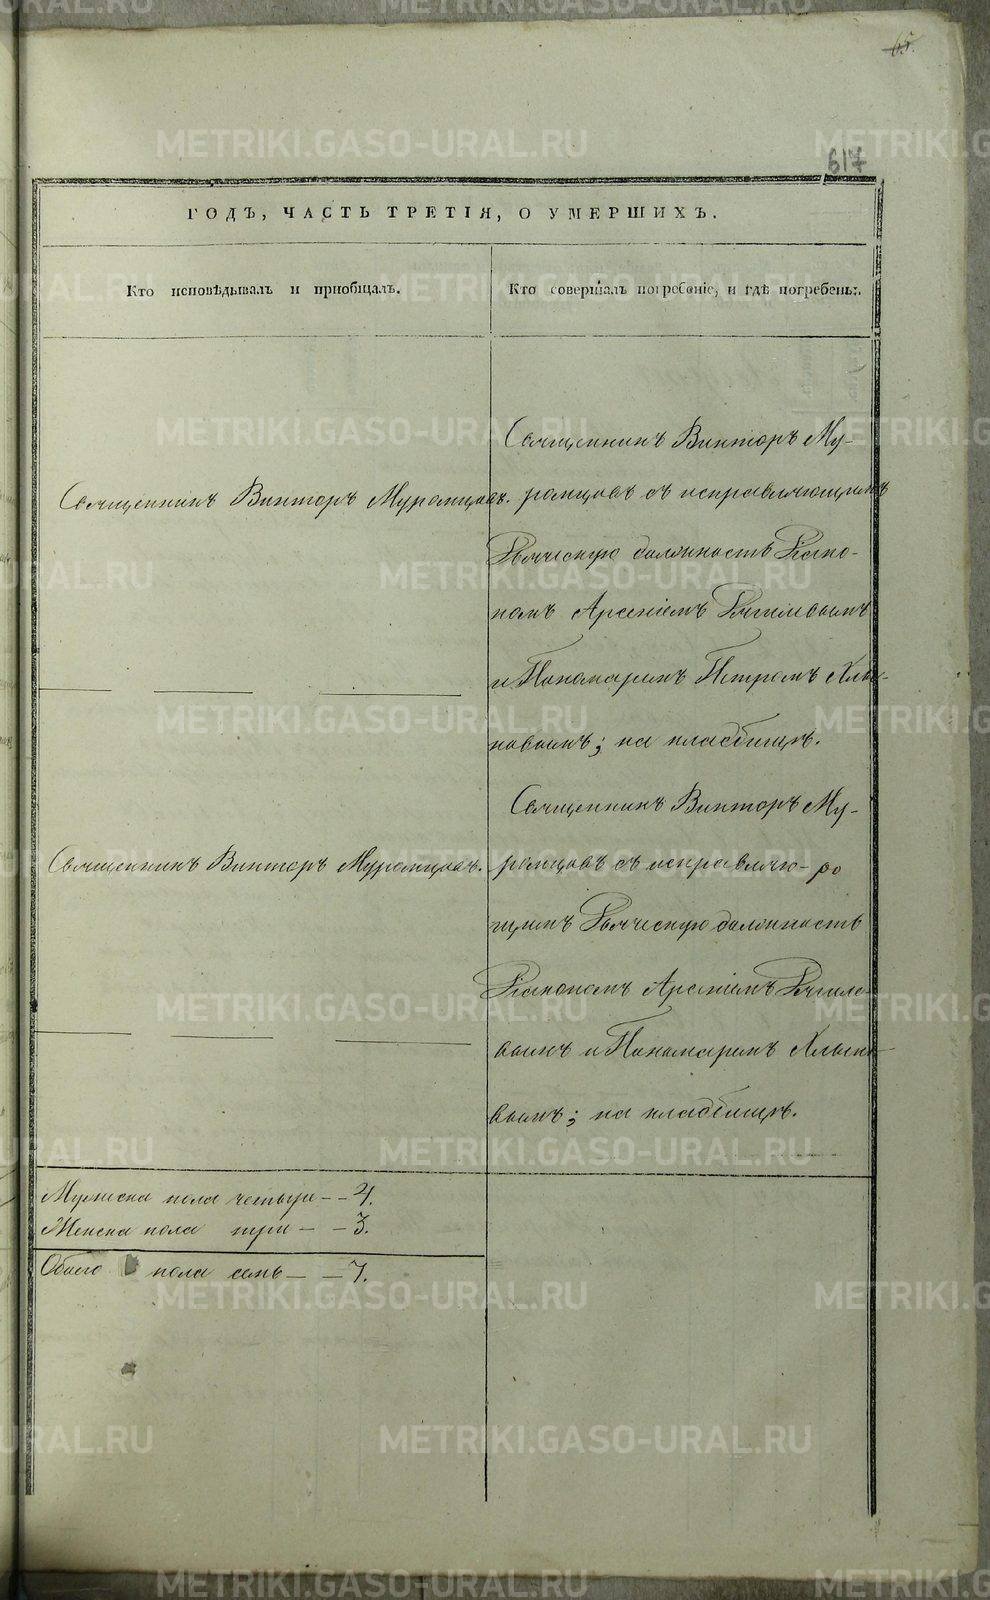 65.
617
ГОДЪ, ЧАСТЬ ТРЕТІЯ, О УМЕРШИХЪ.
Кто исповѣдывалъ и пріобщалъ.
Кто совершалъ погребеніе, и гдѣ погребены:
Священникъ Викторъ Муромцовъ.
Священникъ Викторъ Му-
ромцовъ съ исправляющимъ
Дьяческую должность Діако-
номъ Арсеніемъ
и Пономаремъ Петромъ Хлы-
новымъ; на кладбищѣ.
Священникъ Викторъ Муромцовъ.
Священникъ Викторъ Му-
ромцовъ съ исправляю-
щимъ Дьяческую должность
Діакономъ Арсеніемъ
и Пономаремъ Хлыно-
вымъ; на кладбищѣ.
Мужеска пола четыре - - 4.
Женска пола три - - 3.
Обоего пола семь - - 7.
METRIKI.GASO-URAL.RU